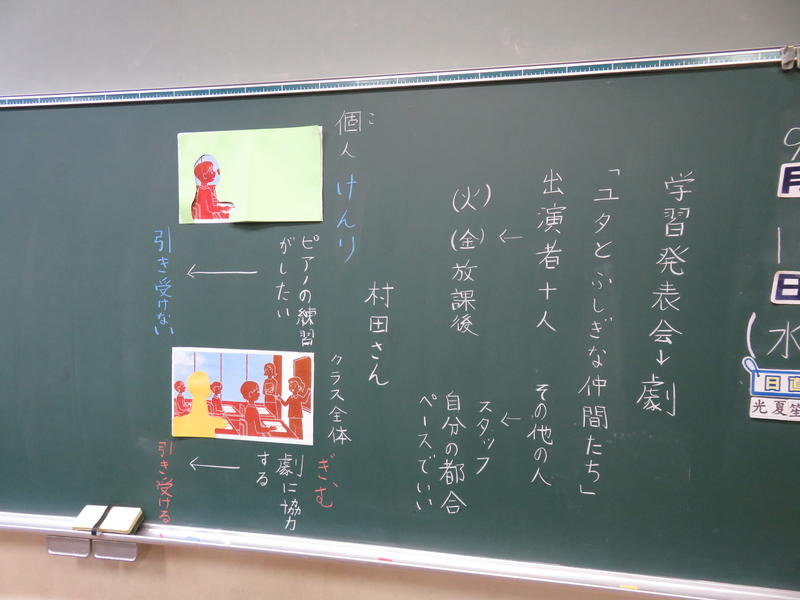 9
月
1
日
(水
日直
光 夏笙
学習発表会→劇
「ユタとふしぎな仲間たち」
出演者十人
(火)(金)放課後
その他の人
スタッフ
自分の都合
ペースでいい
村田さん
個人 けんり
こ
ピアノの練習
がしたい
引き受けない
クラス全体
ぎむ
劇に協力
する
引き受ける